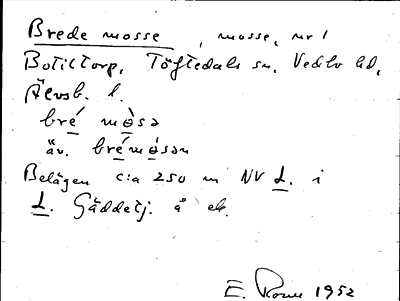 Brede mosse, mosse, nr 1
Botiltorp, Töftedals sn, Vedbo hd,
Älvsb. l.
bré mosə
äv. brémosən
Belägen c:a 250 m NV L. i
L. Gäddetj. å ek.
E. 1952